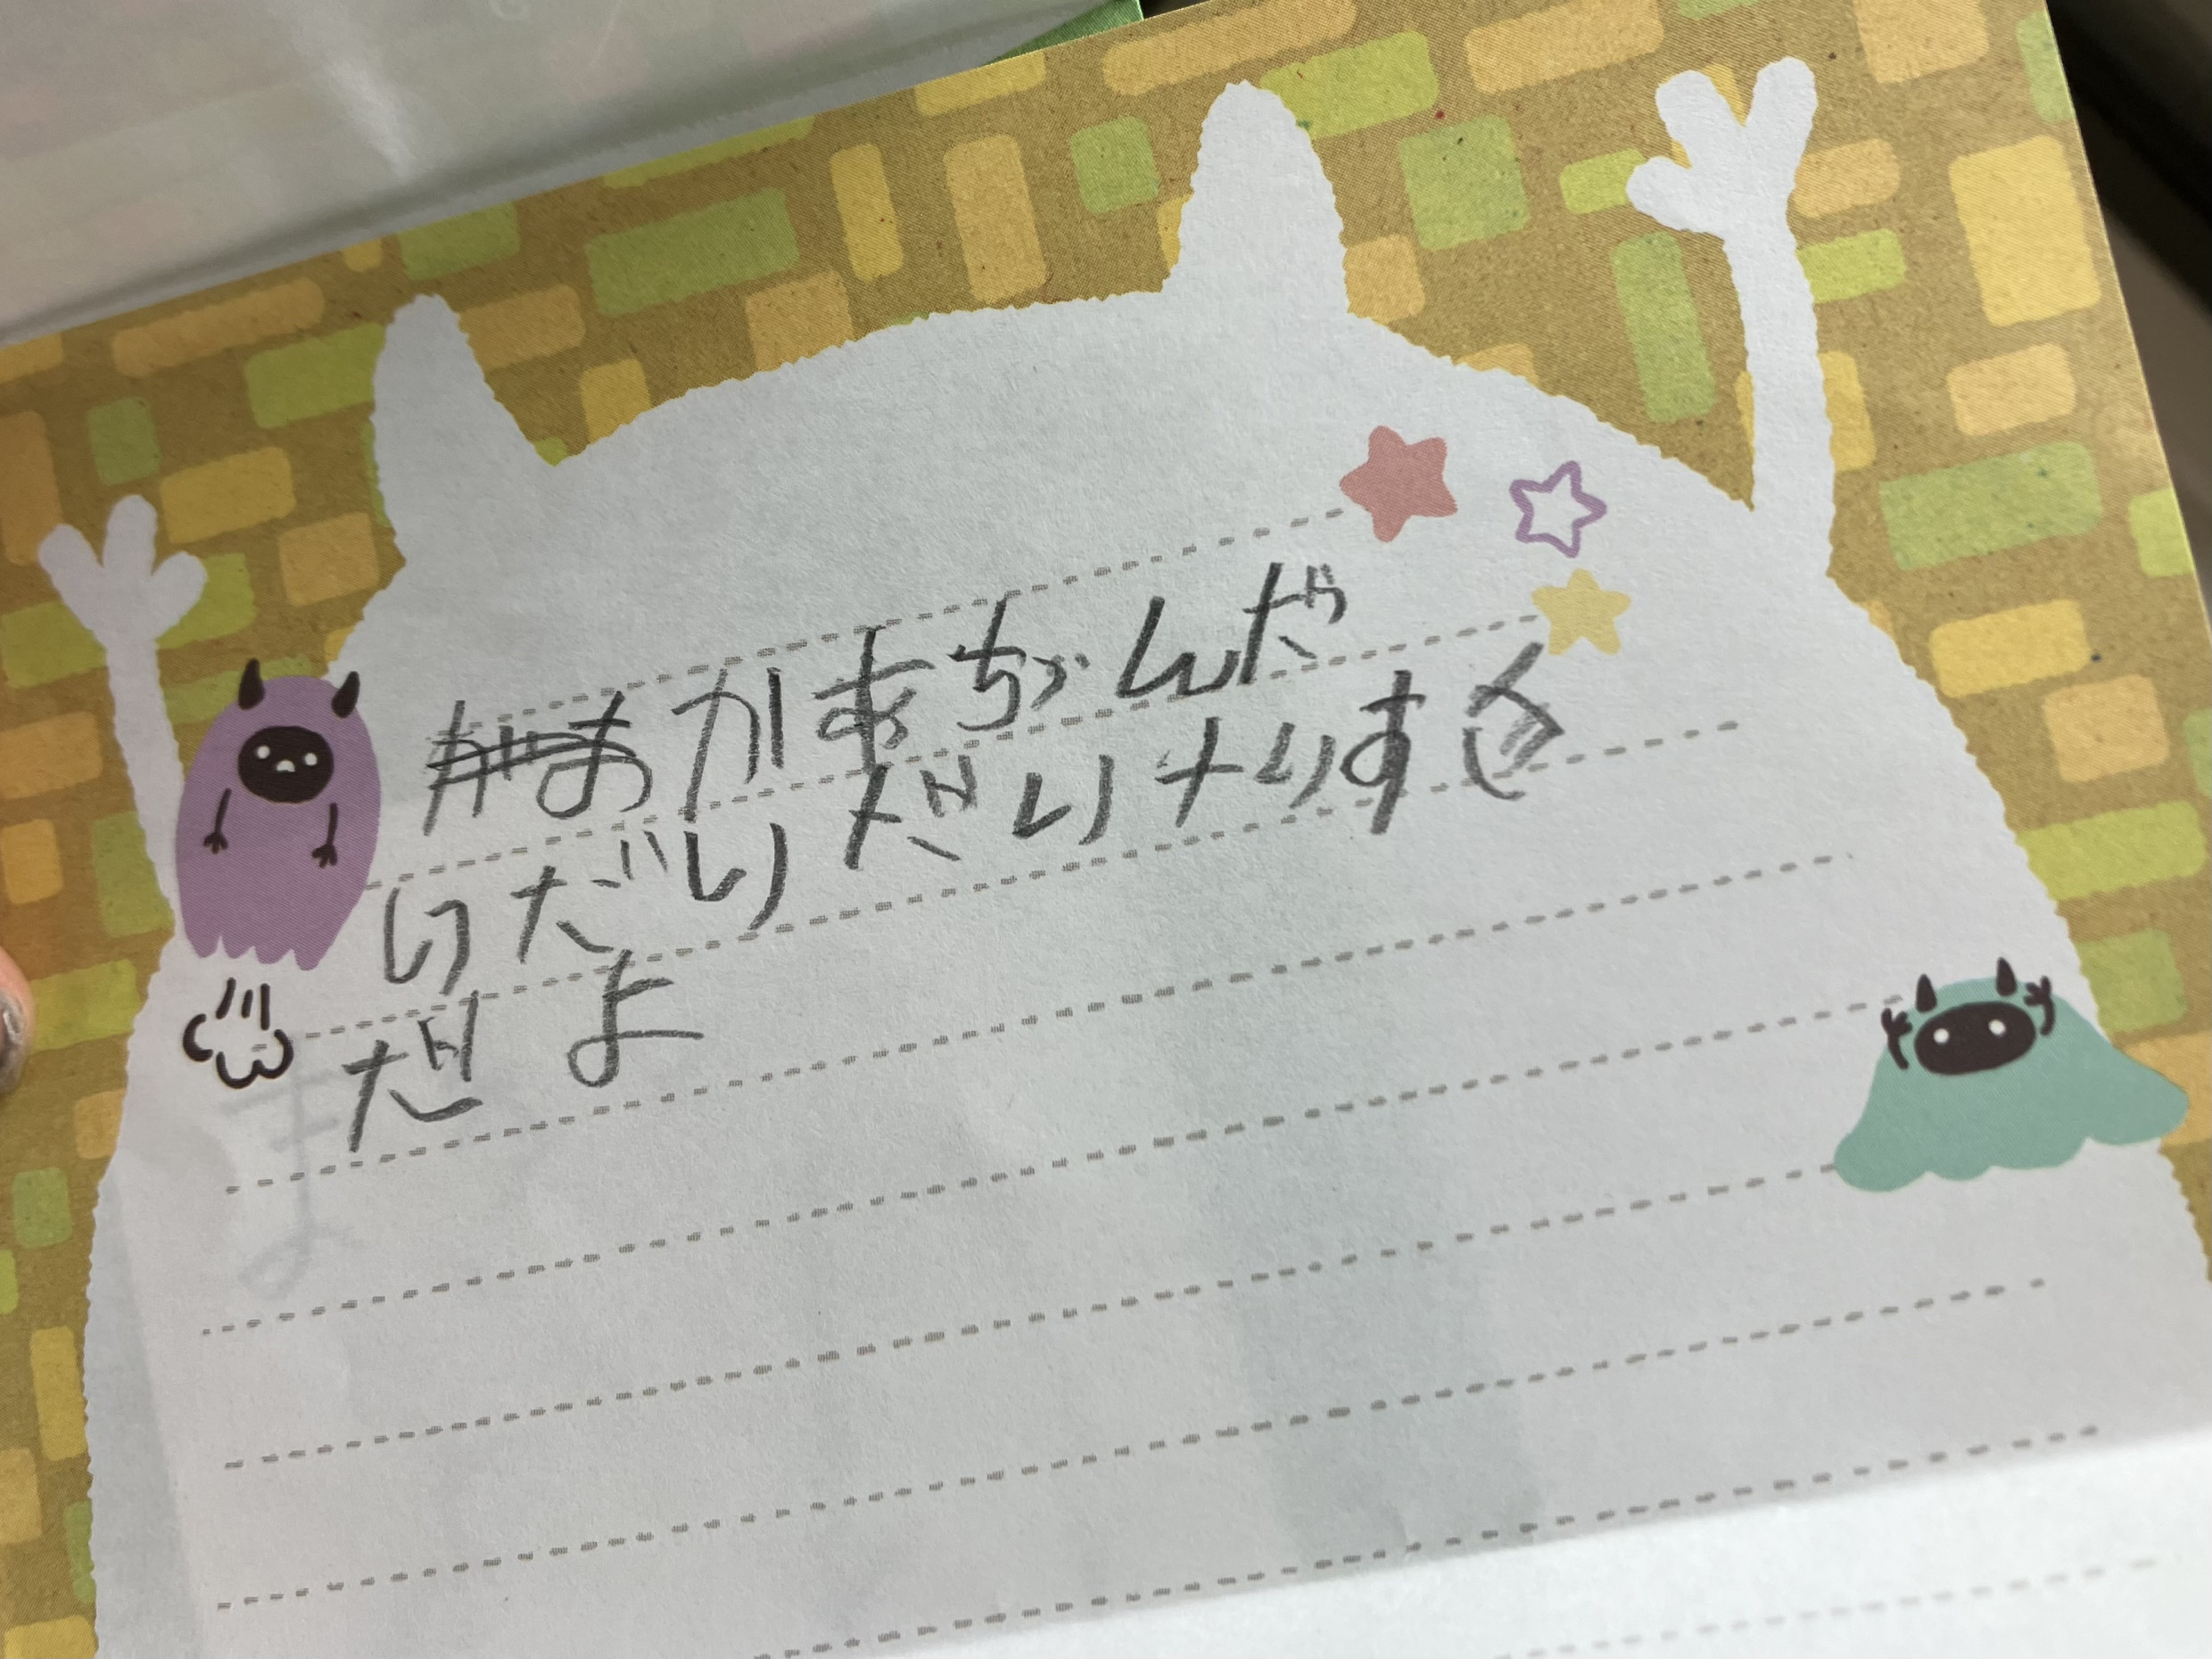 おかあちゃんだ
いだいだいすき
だよ